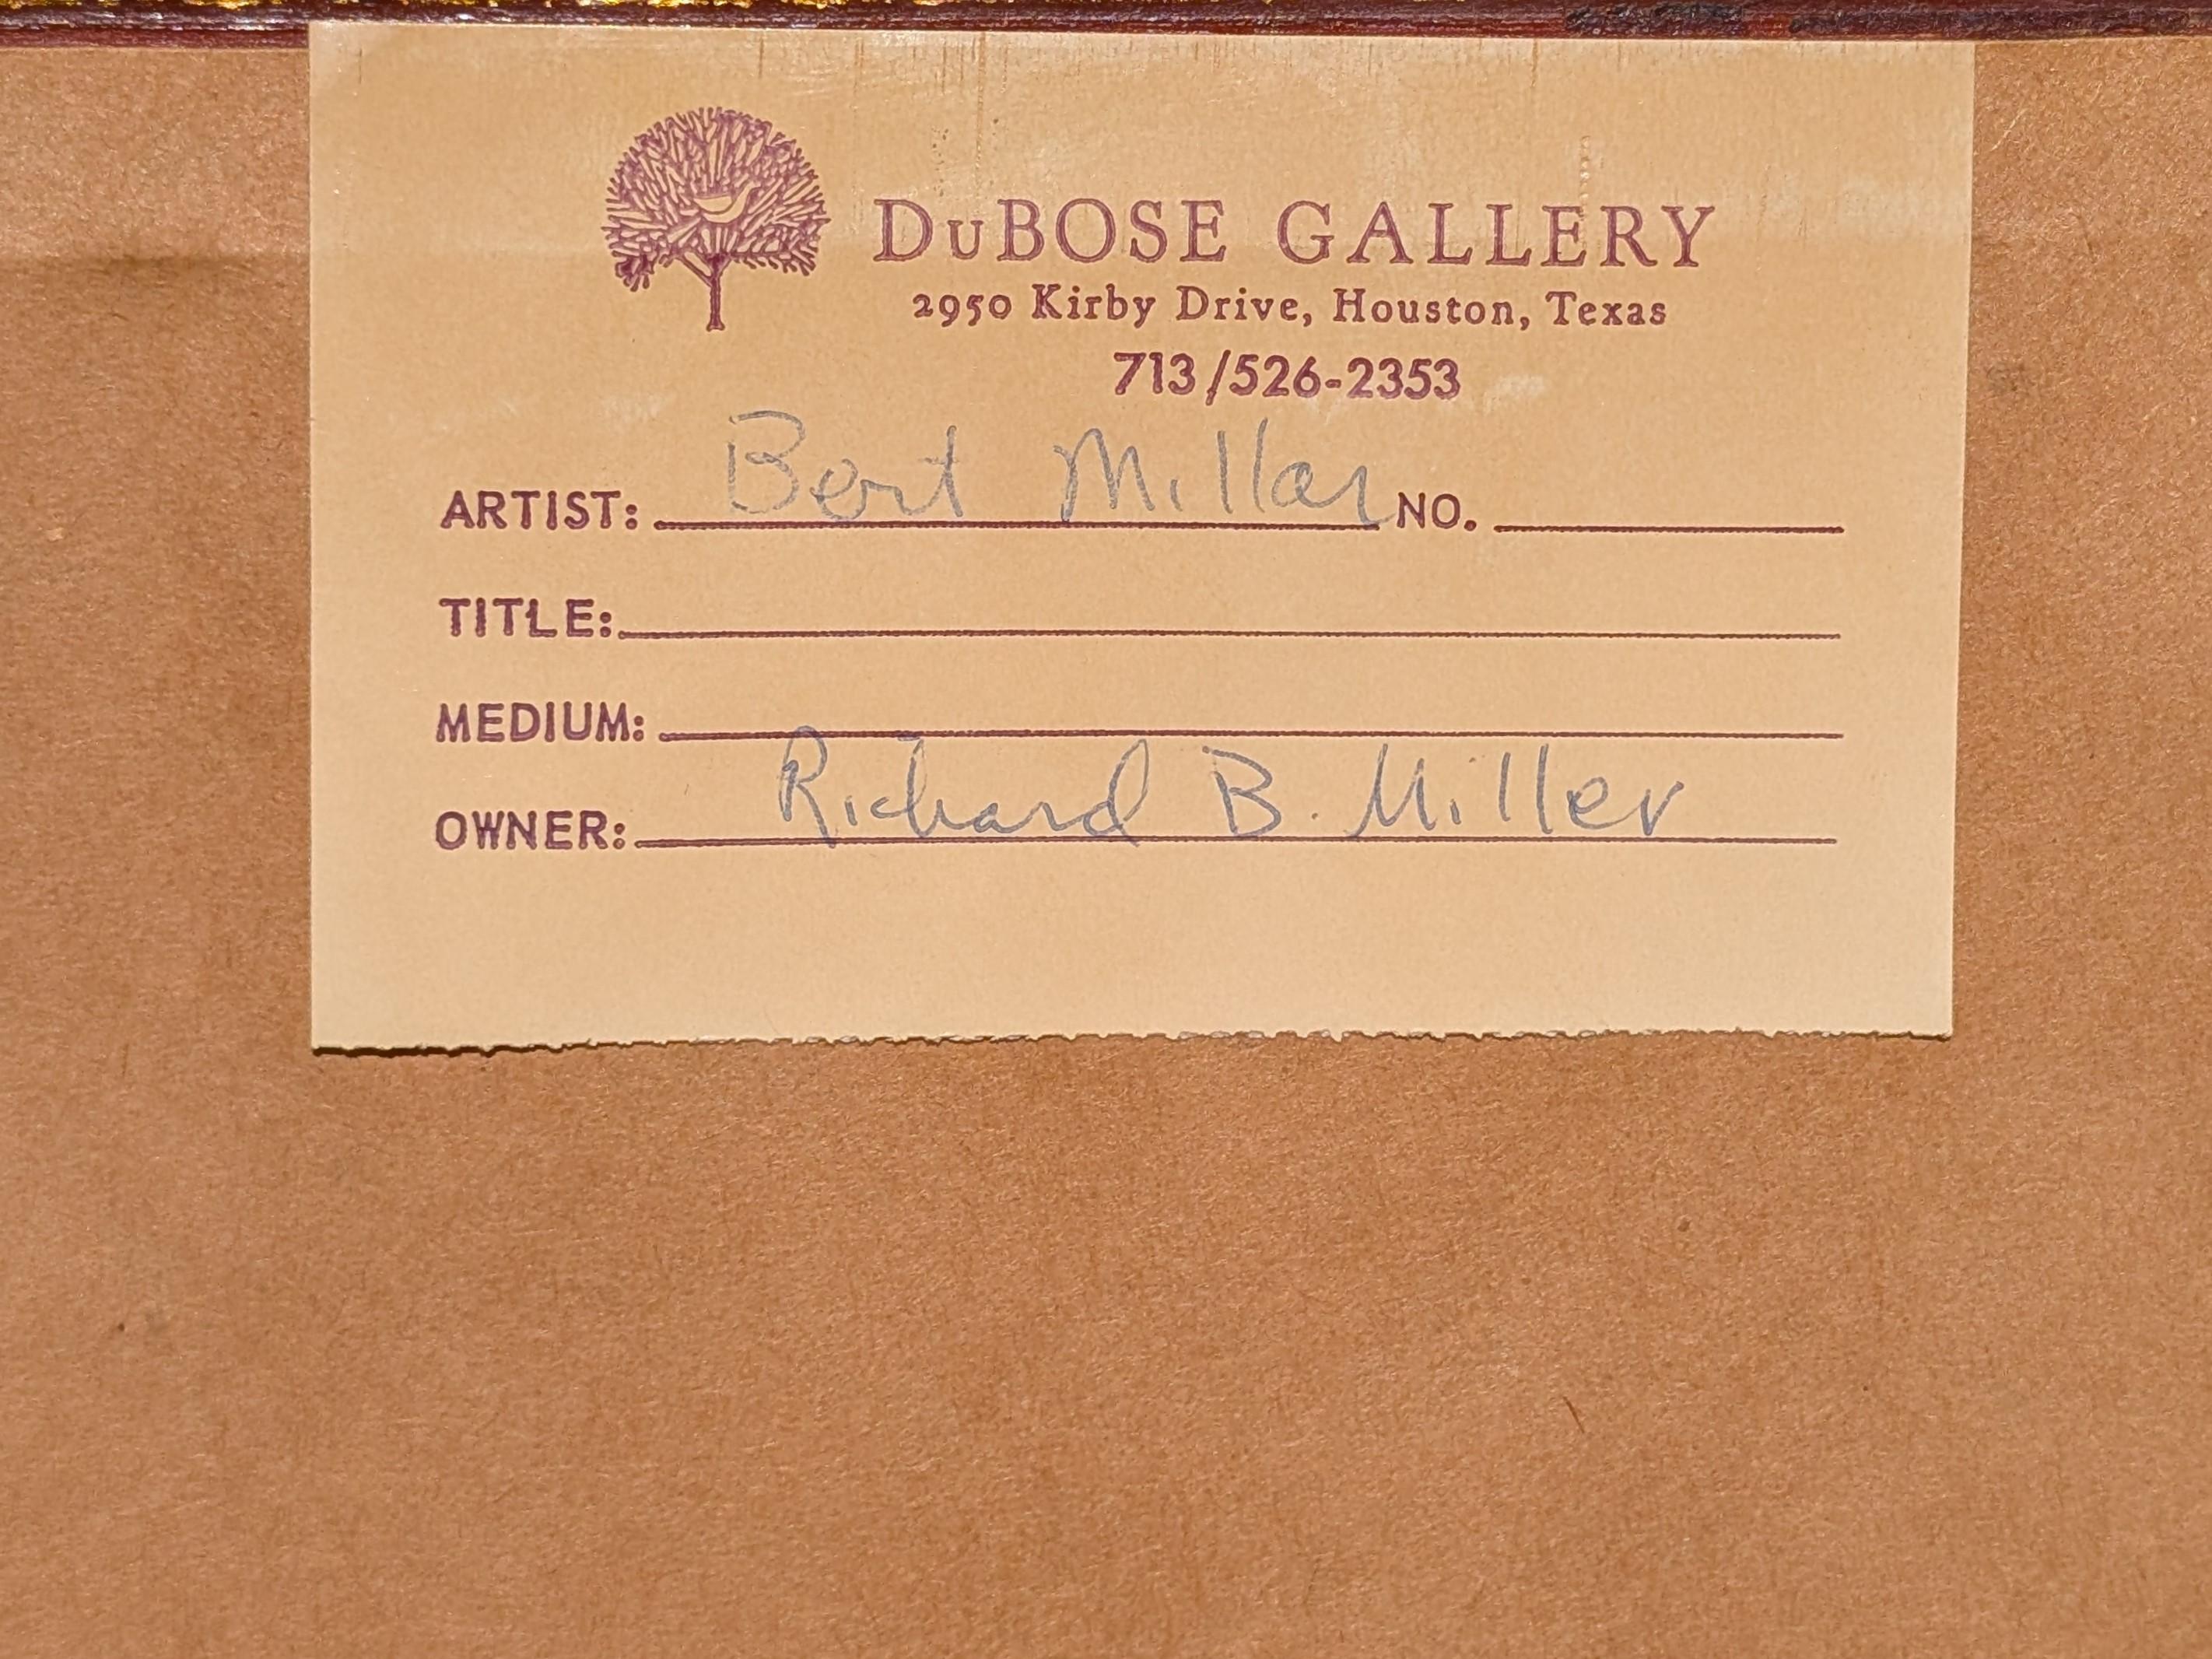 DuBOSE GALLERY
2950 Kirby Drive, Houston, Texas
713/526-2353
ARTIST: Bert Millar NO.
TITLE:
MEDIUM:
OWNER: Richard B. Miller